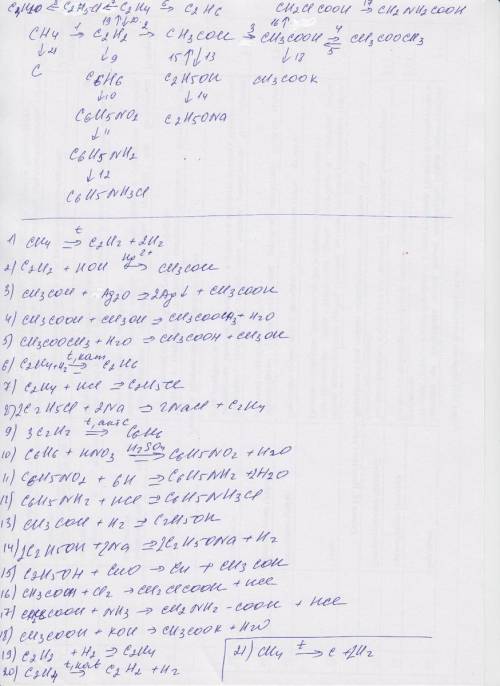 C2H5Cl ⇐ C2H4 6→ C2H6 CH2ClCOOH 17→ CH2NH2COOH
19↑↓20 16↑
CH4 1→ C2H2 2→ CH3COH 3→ CH3COOH 4⇄5 CH3COOCH3
↓21 ↓9 15↑↓13 ↓18
C C6H6 C2H5OH CH3COOK
↓10 ↓14
C6H5NO2 C2H5ONa
↓11
C6H5NH2
↓12
C6H5NH3Cl
1) CH4 t⇒ C2H2 + 2H2
2) C2H2 + HOH Hg2+→ CH3COH
3) CH3COH + Ag2O ⇒ 2Ag↓ + CH3COOH
4) CH3COOH + CH3OH ⇒ CH3COOCH3 + H2O
5) CH3COOCH3 + H2O ⇒ CH3COOH + CH3OH
6) C2H4 + H2 t, кат⇒ C2H6
7) C2H4 + HCl ⇒ C2H5Cl
8) 2C2H5Cl + 2Na ⇒ 2NaCl + C2H4
9) 3C2H2 t, акт C⇒ C6H6
10) C6H6 + HNO3 H2SO4⇒ C6H5NO2 + H2O
11) C6H5NO2 + 6H ⇒ C6H5NH2 + 2H2O
12) C6H5NH2 + HCl ⇒ C6H5NH3Cl
13) CH3COH + H2 ⇒ C2H5OH
14) 2C2H5OH + 2Na ⇒ 2C2H5ONa + H2
15) C2H5OH + CuO → Cu + CH3COH
16) CH3COOH + Cl2 → CH2ClCOOH + HCl
17) COOH + NH3 → CH2NH2-COOH + HCl
18) CH3COOH + KOH → CH3COOK + H2O
19) C2H2 + H2 ⇒ C2H4
20) C2H4 t, кат→ C2H2 + H2
21) CH4 t→ C + 2H2